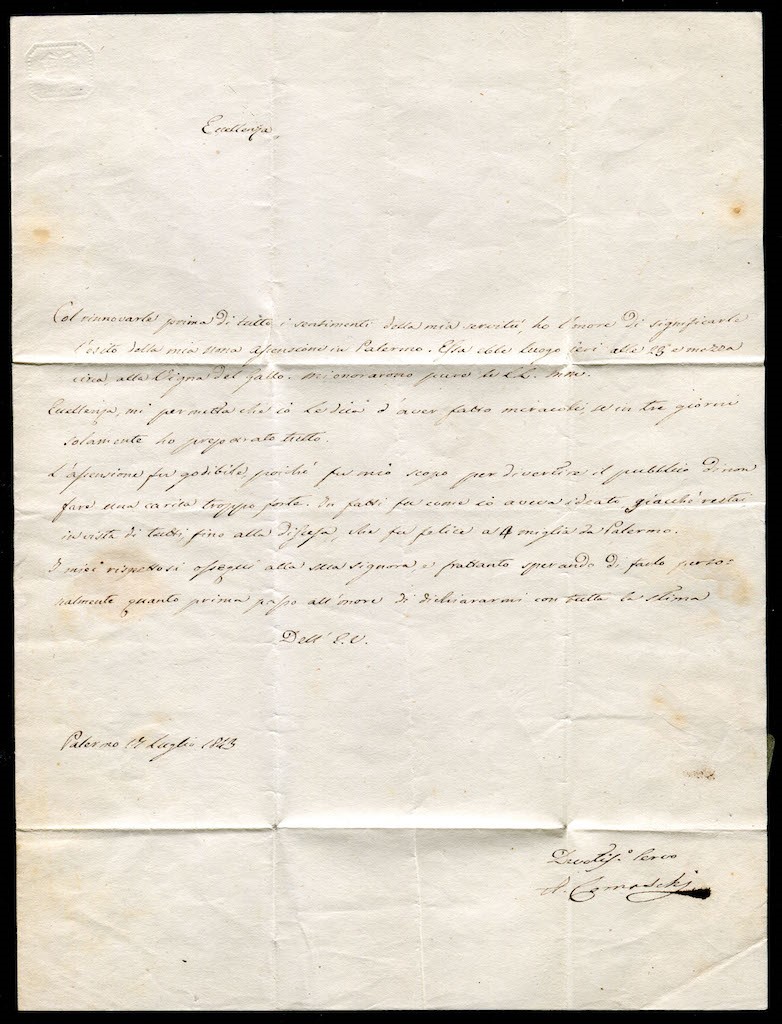 Eccellenza
Col rinnovarle prima di tutto i sentimenti della mia servitù, ho l'onore di significarle
l'esito della mia ascensione in Palermo. Essa ebbe luogo ieri alle 23 e mezza
circa, alla Vigna del gallo. mi onorarono pure le LL. MM.
Eccellenza, mi permetta che io Le dica d'aver fatto miracoli, se in tre giorni
solamente ho preparato tutto.
L'ascensione fu godibile, poiché fu mio scopo per divertire il pubblico di non
fare una carita troppo forte. In fatti fu come io aveva ideato giacché restai
in vista di tutti, fino alla discesa, che fu felice a 4 miglia da Palermo.
I miei rispettosi ossequi alla sua signora, e frattanto sperando di farlo perso=
nalmente quanto prima passo all'onore di dichiararmi con tutta la stima
Dell' E.V.
Palermo 17 Luglio 1843
Devotis.o Servo
A. Comaschi